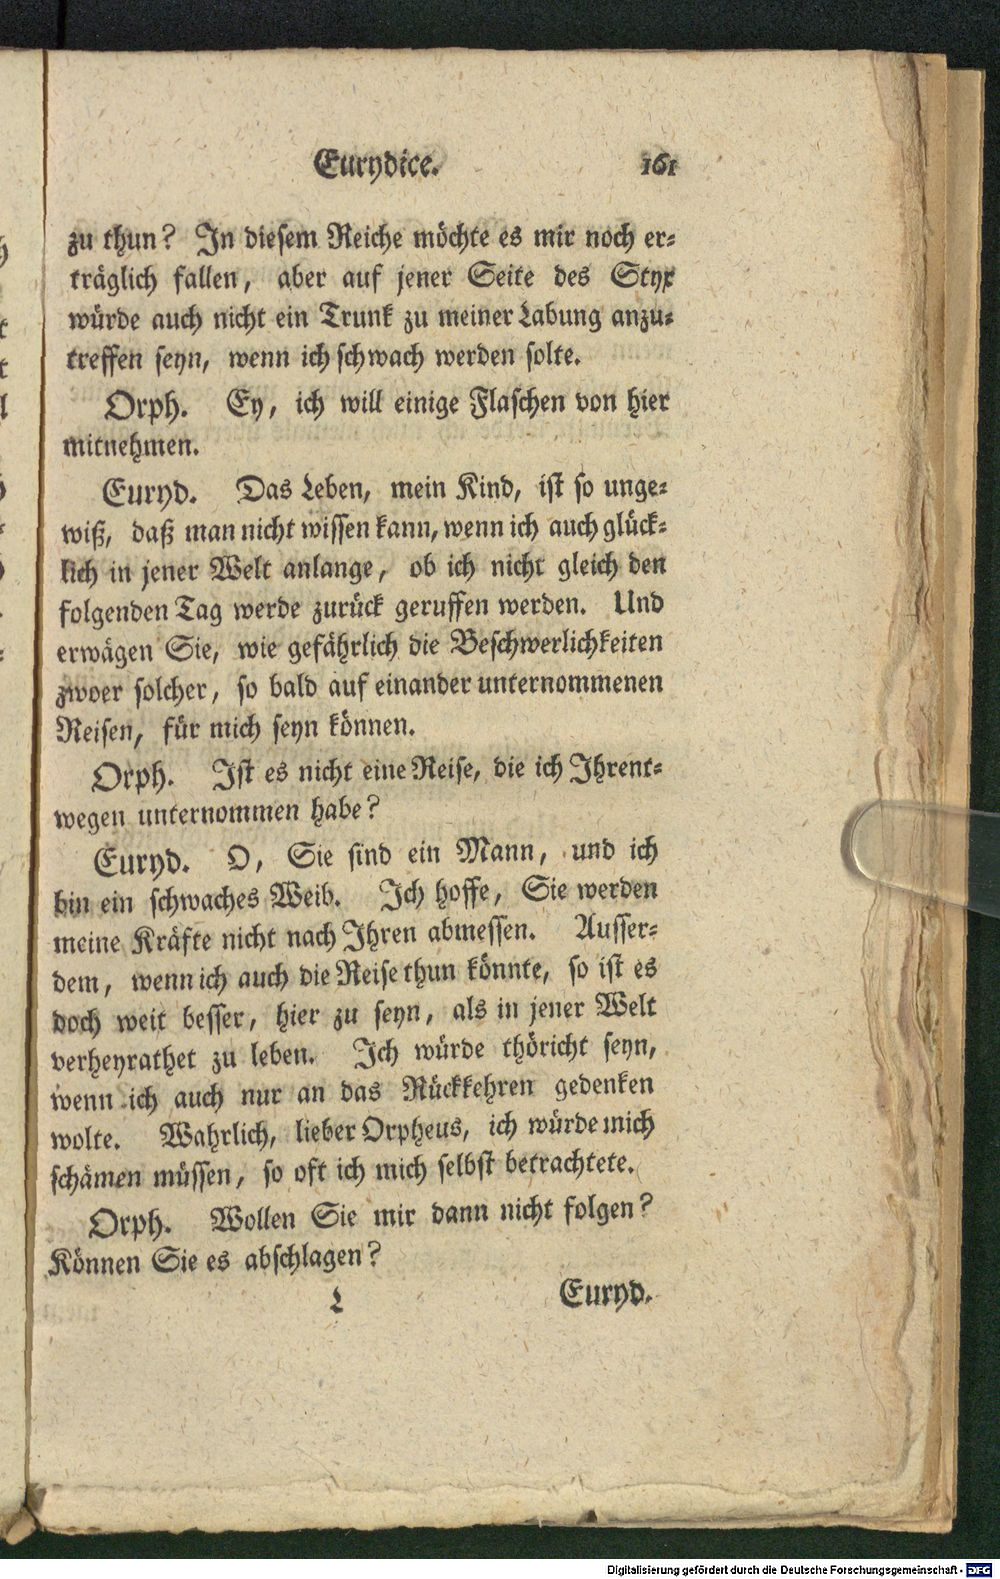 Eurydice. 161
zu thun? In diesem Reiche möchte es mir noch er-
träglich fallen, aber auf jener Seite des Styx
würde auch nicht ein Trunk zu meiner Labung anzu-
treffen seyn, wenn ich schwach werden solte.
Orph. Ey, ich will einige Flaschen von hier
mitnehmen.
Euryd. Das Leben, mein Kind, ist so unge-
wiß, daß man nicht wissen kann, wenn ich auch glück-
lich in jener Welt anlange, ob ich nicht gleich den
folgenden Tag werde zurück geruffen werden. Und
erwägen Sie, wie gefährlich die Beschwerlichkeiten
zwoer solcher, so bald auf einander unternommenen
Reisen, für mich seyn können.
Orph. Ist es nicht eine Reise, die ich Ihrent-
wegen unternommen habe?
Euryd. O, Sie sind ein Mann, und ich
bin ein schwaches Weib. Ich hoffe, Sie werden
meine Kräfte nicht nach Ihren abmessen. Ausser-
dem, wenn ich auch die Reise thun könnte, so ist es
doch weit besser, hier zu seyn, als in jener Welt
verheyrathet zu leben. Ich würde thöricht seyn,
wenn ich auch nur an das Rückkehren gedenken
wolte. Wahrlich, lieber Orpheus, ich würde mich
schämen müssen, so oft ich mich selbst betrachtete.
Orph. Wollen Sie mir dann nicht folgen?
Können Sie es abschlagen?
L Euryd.
Digitalisierung gefördert durch die Deutsche Forschungsgemeinschaft - DFG